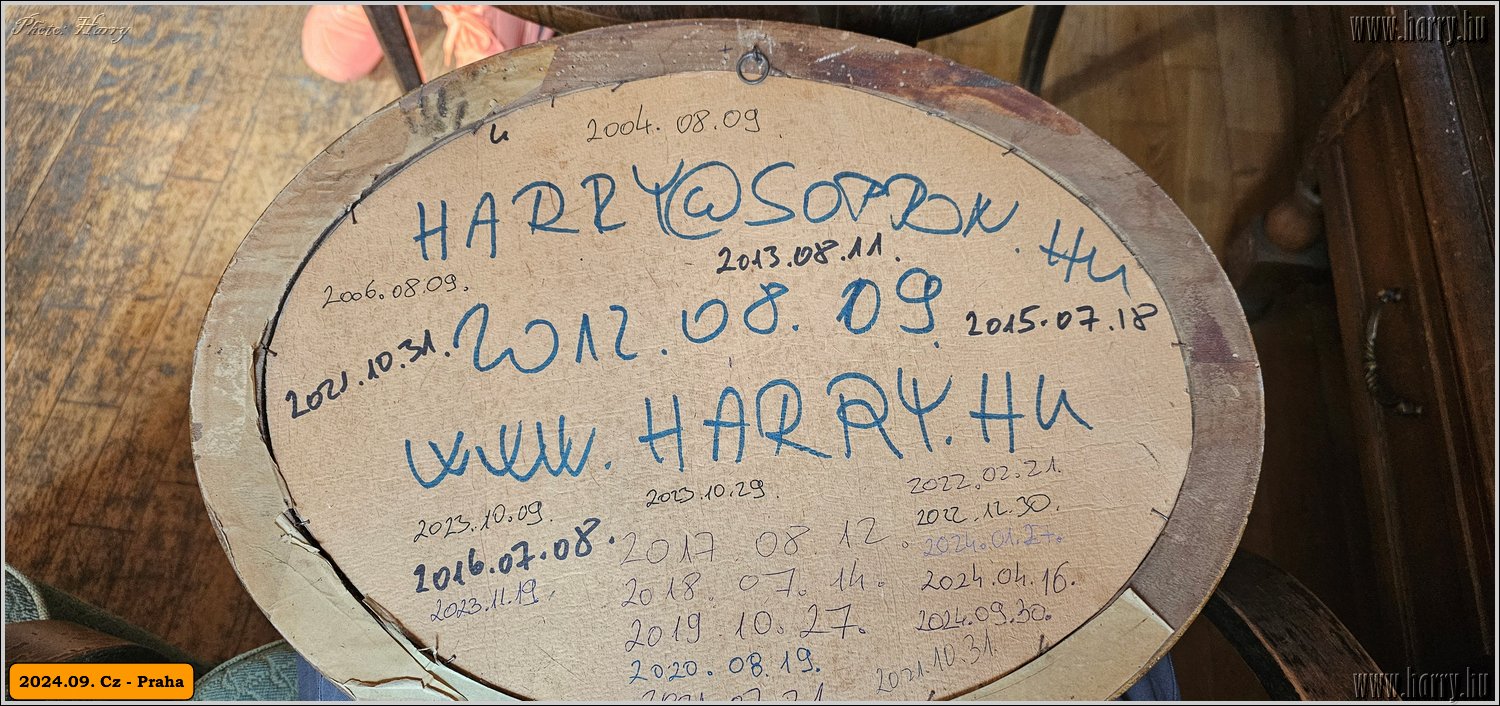 Photo: Harry
www.harry.hu
2004.08.09.
HARRY@SOPRON.HU
2013.08.11.
2006.08.09.
2012.08.09.
2015.07.18
2021.10.31.
WWW.HARRY.HU
2022.02.21.
2023.10.29.
2023.10.09.
2022.12.30.
2016.07.08.
2017 08.12.
2024.01.27.
2023.11.19.
2018.07.14.
2024.04.16.
2019.10.27.
2024.09.30.
2020.08.19.
2021.10.31.
2024.09. Cz - Praha
www.harry.hu